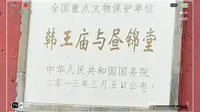 全国重点文物保护单位
韩王庙与昼锦堂
中华人民共和国国务院
二〇一三年三月五日公布